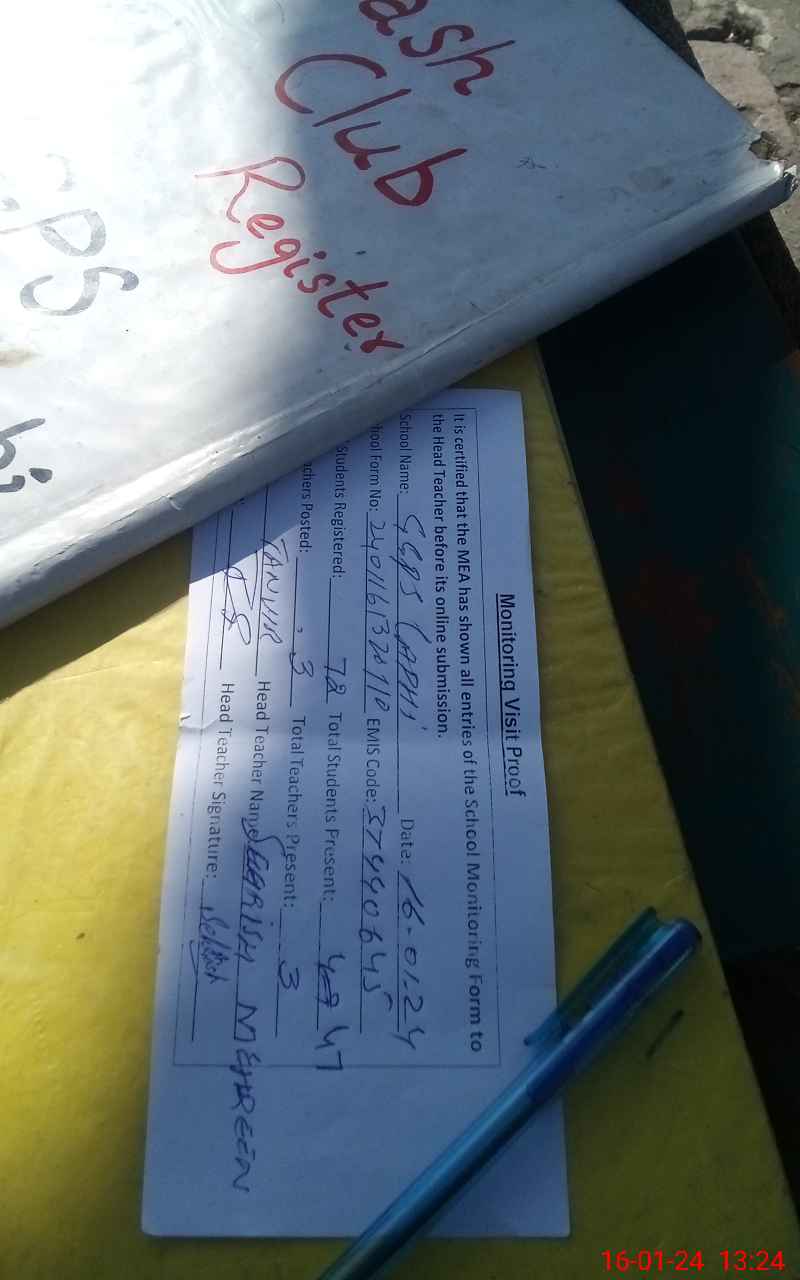 ash
Club
Register
GPS
bi
Monitoring Visit Proof
It is certified that the MEA has shown all entries of the School Monitoring Form to
the Head Teacher before its online submission.
School Name: Date: 16-01-24
hool Form No: EMIS Code: 37440645
Students Registered: 72 Total Students Present: 47
achers Posted: 3 Total Teachers Present: 3
TANVIR Head Teacher Name: SEHRISH MEHREEN
Head Teacher Signature:
16-01-24 13:24